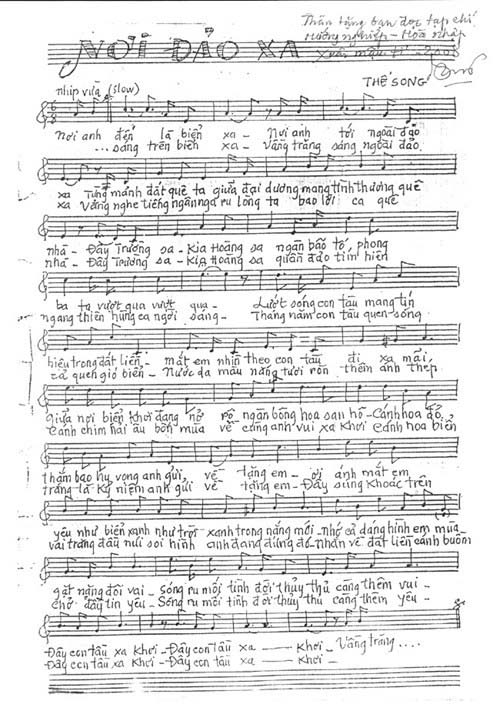 Thân tặng bạn đọc tạp chí
Hướng nghiệp - Hòa nhập
NƠI ĐẢO XA
Xuân Mậu Tí - 2008
THẾ SONG
nhịp vừa (slow)
Nơi anh đến là biển xa - Nơi anh tới ngoài đảo
... sáng trên biển xa - Vầng trăng sáng ngoài đảo
xa Từng mảnh đất quê ta giữa đại dương mang tình thương quê
xa Vẳng nghe tiếng ngân nga ru lòng ta bao lời ca quê
nhà - Đây Trường Sa - Kia Hoàng Sa ngàn bão tố, phong
nhà - Đây Trường Sa - Kia Hoàng Sa quần đảo tím hiên
ba ta vượt qua vượt qua - Lướt sóng con tàu mang tín
ngang thiên hùng ca ngời sáng - Tháng năm con tàu quen sóng
hiệu trong đất liền - mắt em nhìn theo con tàu đi xa mãi,
cả quen gió biển - Nước da màu nắng tươi ròn thêm ánh thép
Giữa nơi biển khơi đang nở rộ ngàn bông hoa san hô - Cánh hoa đỏ,
Cánh chim hải âu bốn mùa về cùng anh vui xa khơi Cánh hoa biển
thắm bao hy vọng anh gửi, về tặng em - ơi ánh mắt em
trắng là kỷ niệm anh gửi về tặng em - Đây súng khoác trên
yêu như biển xanh như trời xanh trong nắng mới - nhớ cả dáng hình em mùa -
vai trăng đầu núi soi hình anh đang đứng đó - Nhắn về đất liền cánh buồm
gặt nặng đôi vai - Sóng ru mối tình đời thủy thủ càng thêm vui -
chở đầy tin yêu - Sóng ru mối tình đời thủy thủ càng thêm yêu -
Đây con tàu xa khơi - Đây con tàu xa — khơi - Vầng trăng ....
Đây con tàu xa khơi - Đây con tàu xa — khơi -